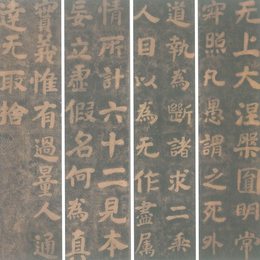 无上大涅槃圓明常
寂照凡愚謂之死外
道執為斷諸求二乘
人目以為无作盡属
情所計六十二見本
妄立虛假名何為真
實義惟有過量人通
達无取捨